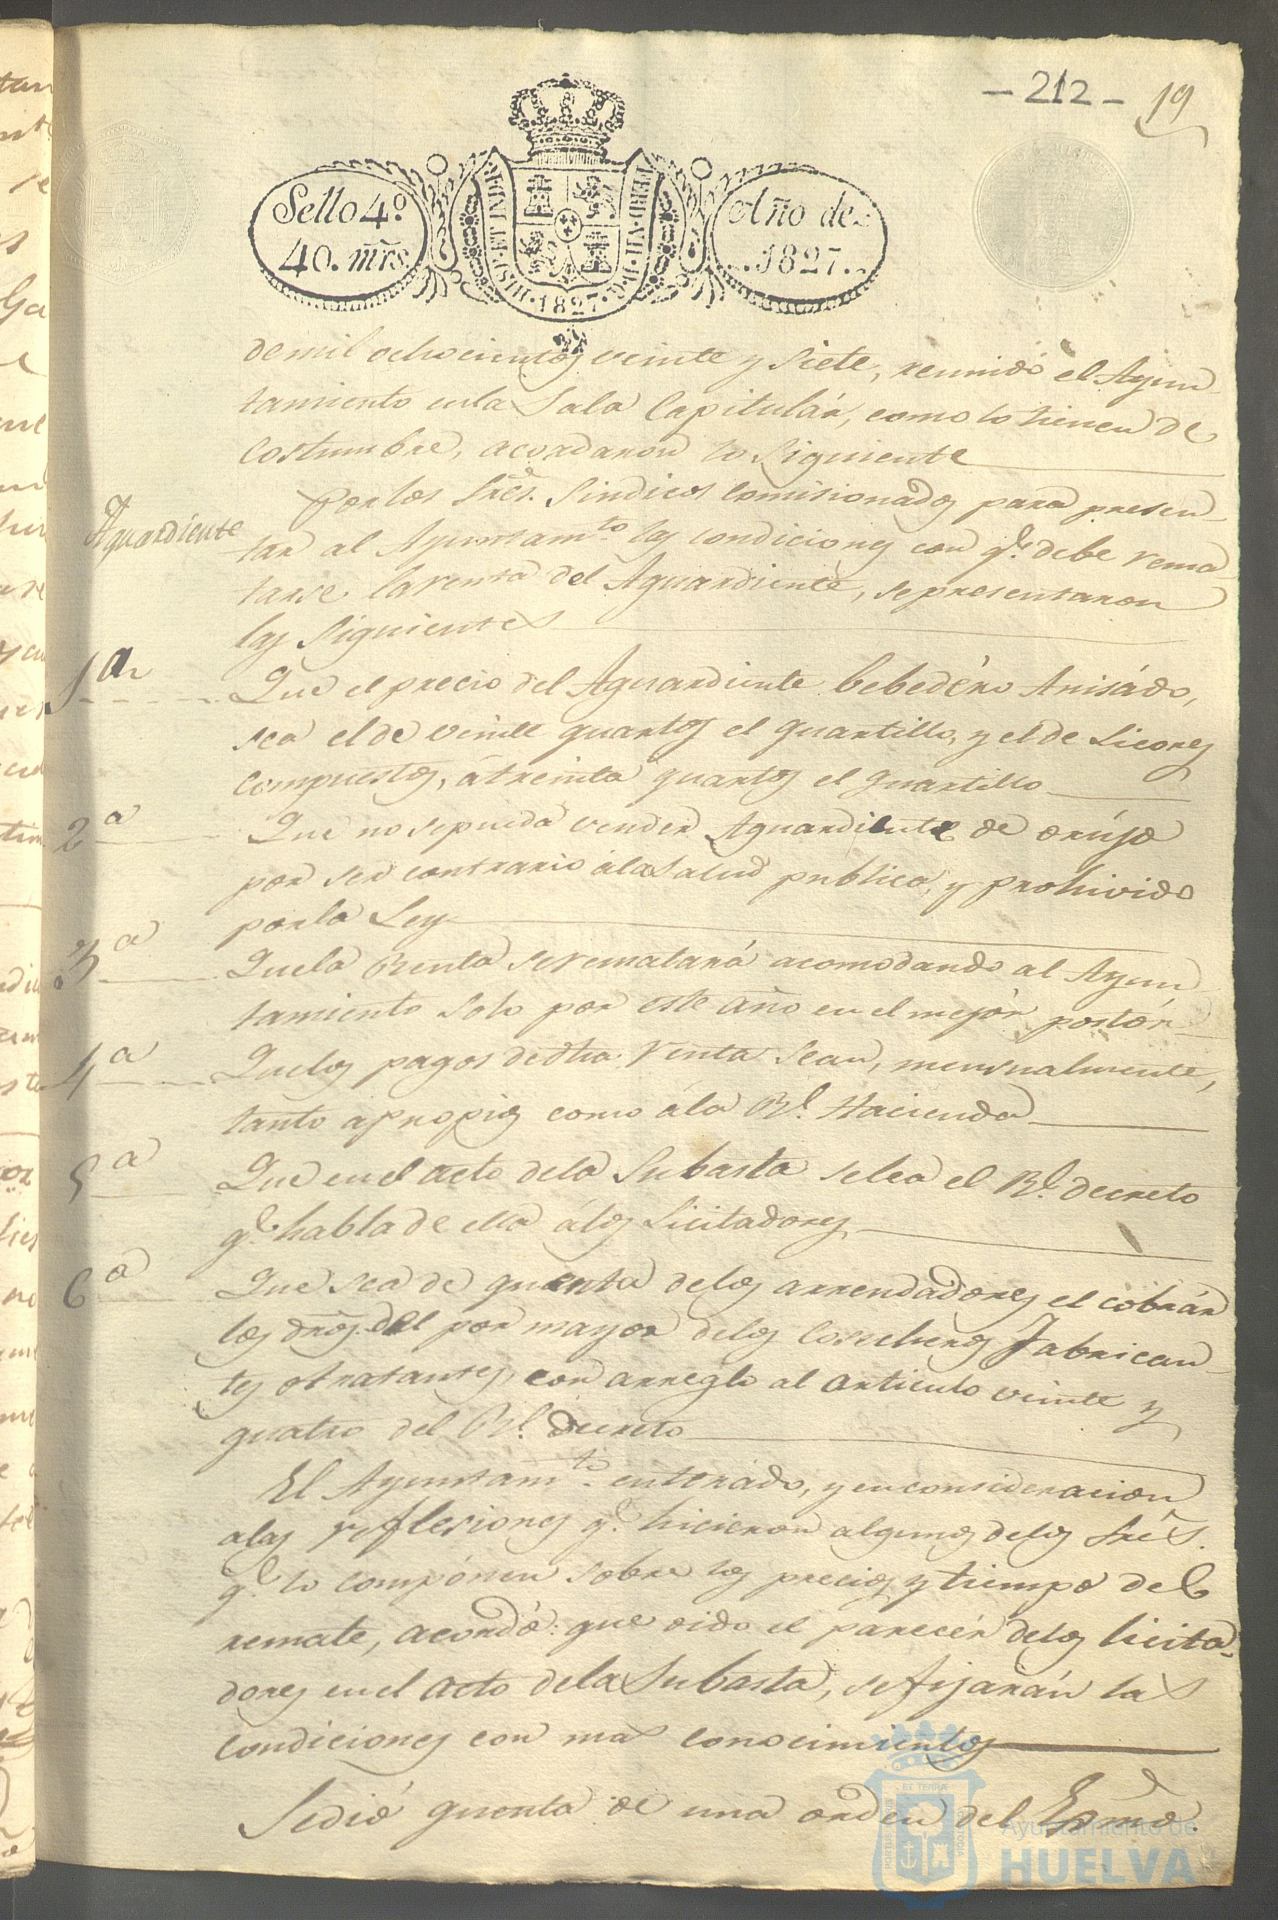 - 212 - 19
Sello 4º
40. mrs.
HISP. ET IND. R.
FERD. VII. D. G.
1827
Año de
1827.
de mil ochocientos veinte y siete, reunido el Ayun
tamiento en la Sala Capitulár, como lo tienen de
costumbre, acordaron lo siguiente
Aguardiente
Por los Sres. Sindicos comisionados para presen
tar al Ayuntamto. las condiciones con qe. debe rema
tarse la renta del Aguardiente, se presentaron
las siguientes
1ª Que el precio del Aguardiente bebedéro Anisádo,
sea el de veinte quartos el quartillo, y el de Licores
compuestos, á treinta quartos el quartillo
2ª Que no se pueda vender Aguardiente de orújo
por ser contrario á la salud publica, y prohivido
por la Ley
3ª Que la Renta se rematará acomodando al Ayun
tamiento solo por este año en el mejór postór
4ª Que los pagos de dha. renta sean, mensualmente,
tanto a propios como á la Rl. Hacienda
5ª Que en el acto de la Subasta se lea el Rl. decreto
qe. habla de ella á los Licitadores
6ª Que sea de quenta de los arrendadores el cobrár
los dros. del por mayor de los Cosecheros Fabrican
tes o tratantes, con arreglo al articulo veinte y
quatro del Rl. decreto
El Ayuntamto. enterádo, y en consideracion
a las reflesiones qe. hicieron algunos de los Sres.
qe. lo compónen sobre los precios y tiempo del
remate, acordó: que oido el parecér de los licita
dores en el acto de la Subasta, se fijarán las
condiciones con mas conocimientos
Se dió quenta de una orden del Exmo.
Ayuntamiento de
HUELVA